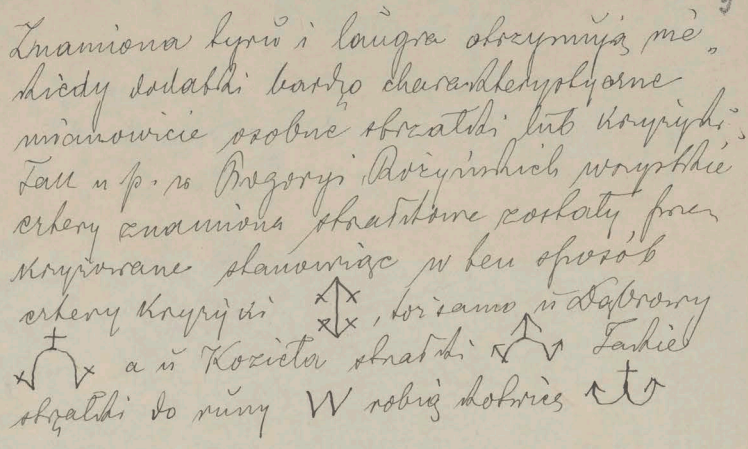 Znamiona tyru i laugra otrzymują nie„
kiedy dodatki bardzo charakterystyczne
mianowicie osobne strzałki lub krzyżyki:
Tak n p. w Bogoryi Rożyńskich wszystkie
cztery znamiona strzałkowe zostały prze„
krzyżowane stanowiąc w ten sposób
cztery krzyżyki , toż samo u Dąbrowy
a u Kozieła strzałki Takie
strzałki do runy W robią kotwicę